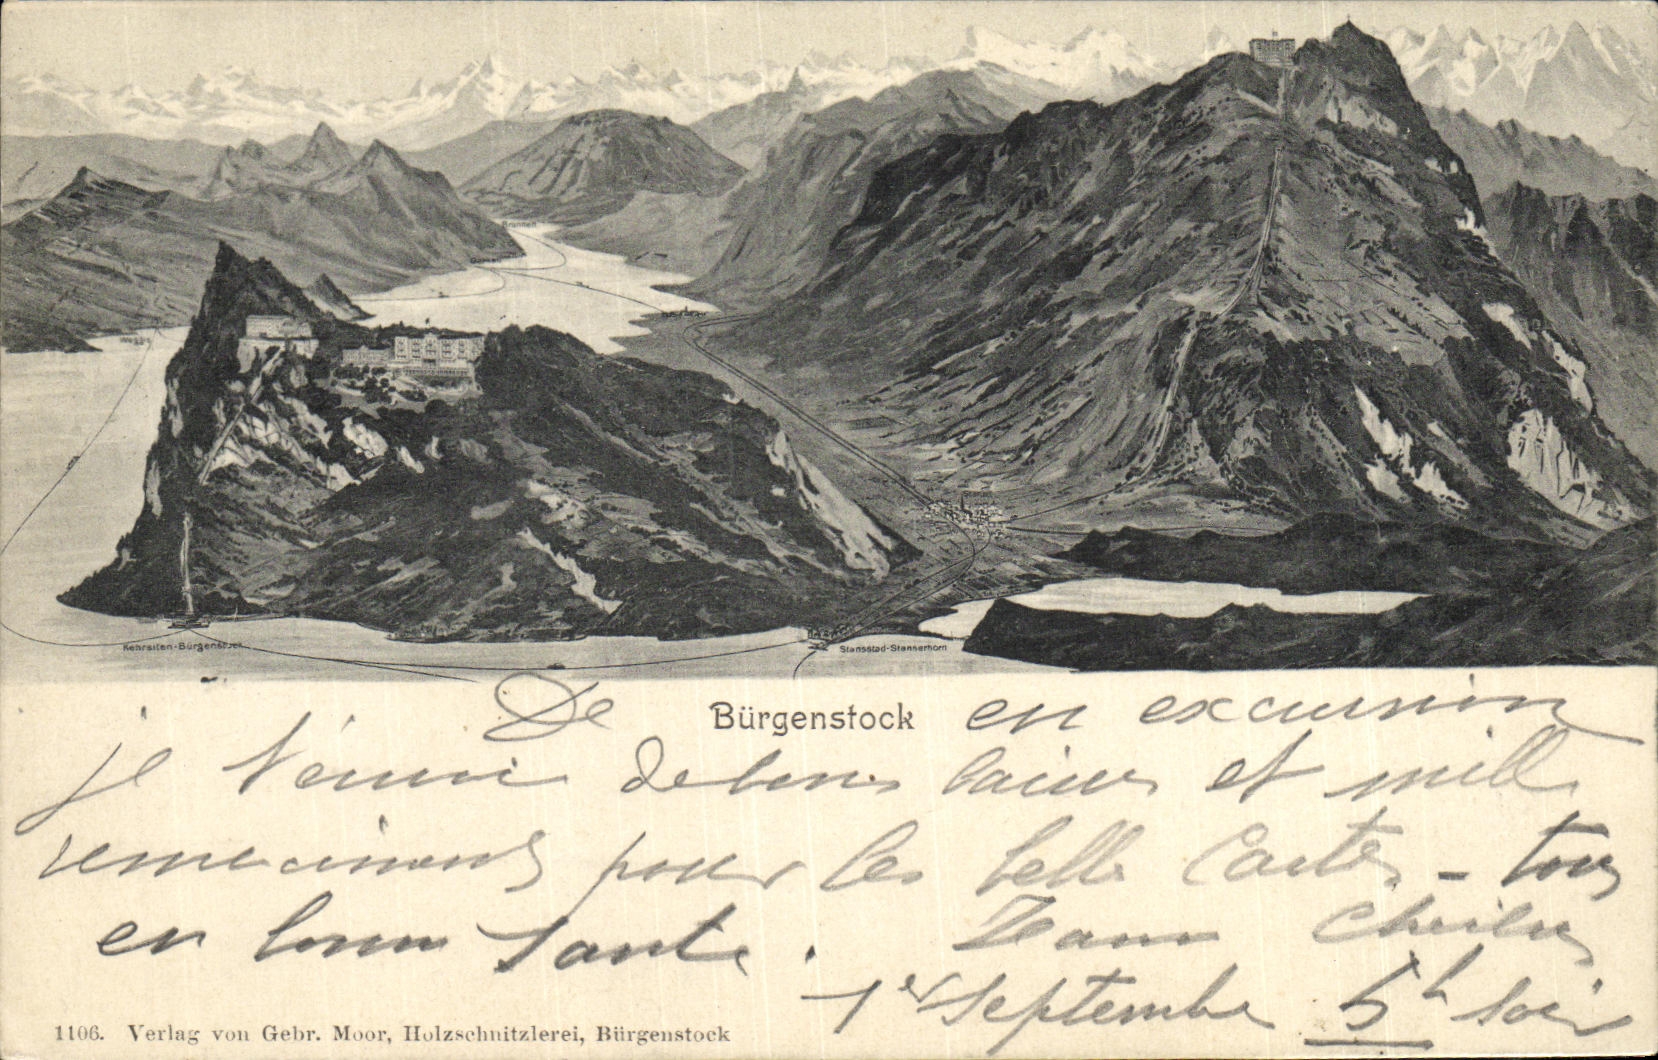 Brunnen
Kehrsiten-Bürgenstock
Stansstad-Stanserhorn
De Bürgenstock en excursion
je t'envoie de bons baisers et mille
remerciements pour les belles Cartes - tous
en bonne santé.
1er Septembre 5h soir
1106. Verlag von Gebr. Moor, Holzschnitzlerei, Bürgenstock